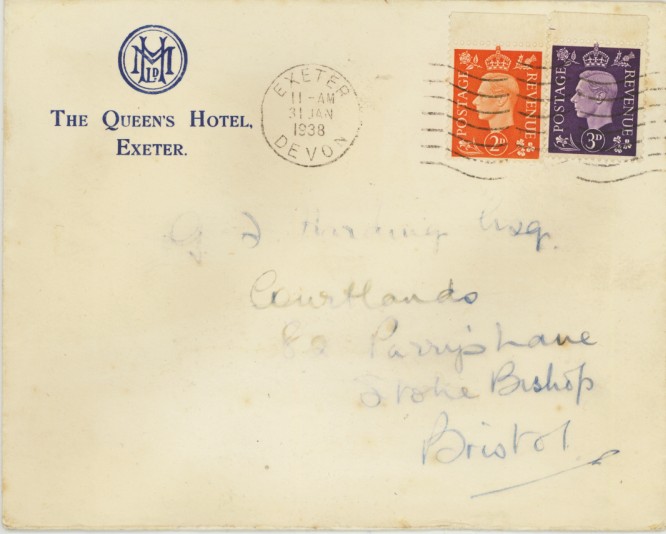 MH LD
THE QUEEN'S HOTEL,
EXETER.
EXETER
11-AM
31 JAN
1938
DEVON
POSTAGE REVENUE
2D
POSTAGE REVENUE
3D
G Esq.
Courtlands
82 Parry's Lane
Stoke Bishop
Bristol